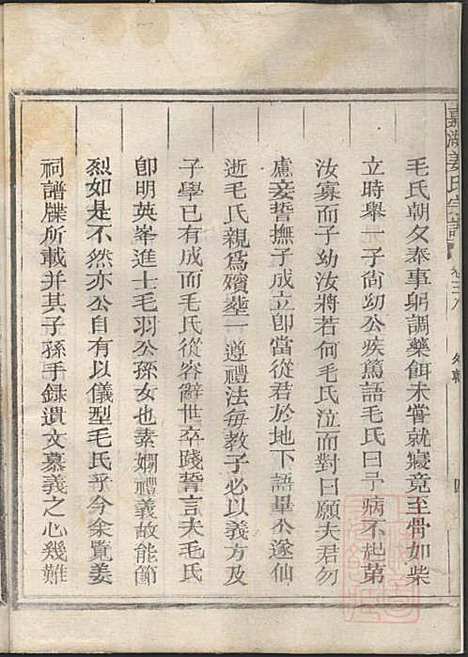 嘉湖姜氏宗譜
卷三八
毛氏朝夕奉事躬調藥餌未嘗就寢竟至骨如柴
立時舉一子尚幼公疾篤語毛氏曰予病不起第
汝寡而子幼汝將若何毛氏泣而對曰願夫君勿
慮妾誓撫子成立卽當從君於地下語畢公遂仙
逝毛氏親爲殯塟一遵禮法每教子必以義方及
子學已有成而毛氏從容辭世卒踐誓言夫毛氏
卽明英峯進士毛羽公孫女也素嫻禮義故能節
烈如是不然亦公自有以儀型毛氏乎今余覽姜
祠譜牒所載并其子孫手録遺文慕義之心幾難